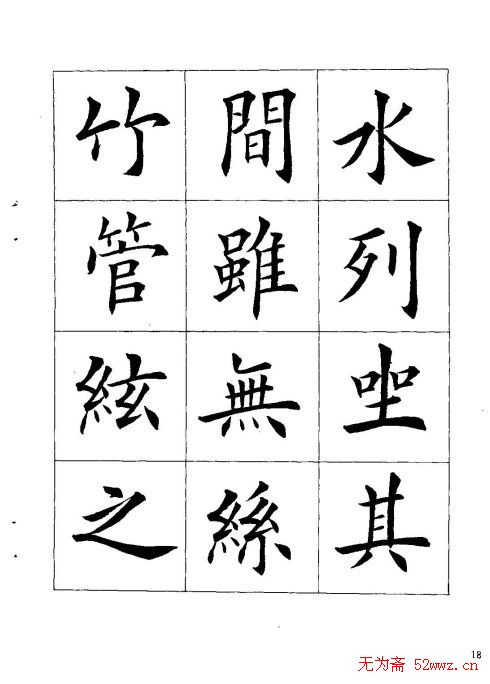 水列坐其
間雖無絲
竹管絃之
18
无为斋 52wwz.cn